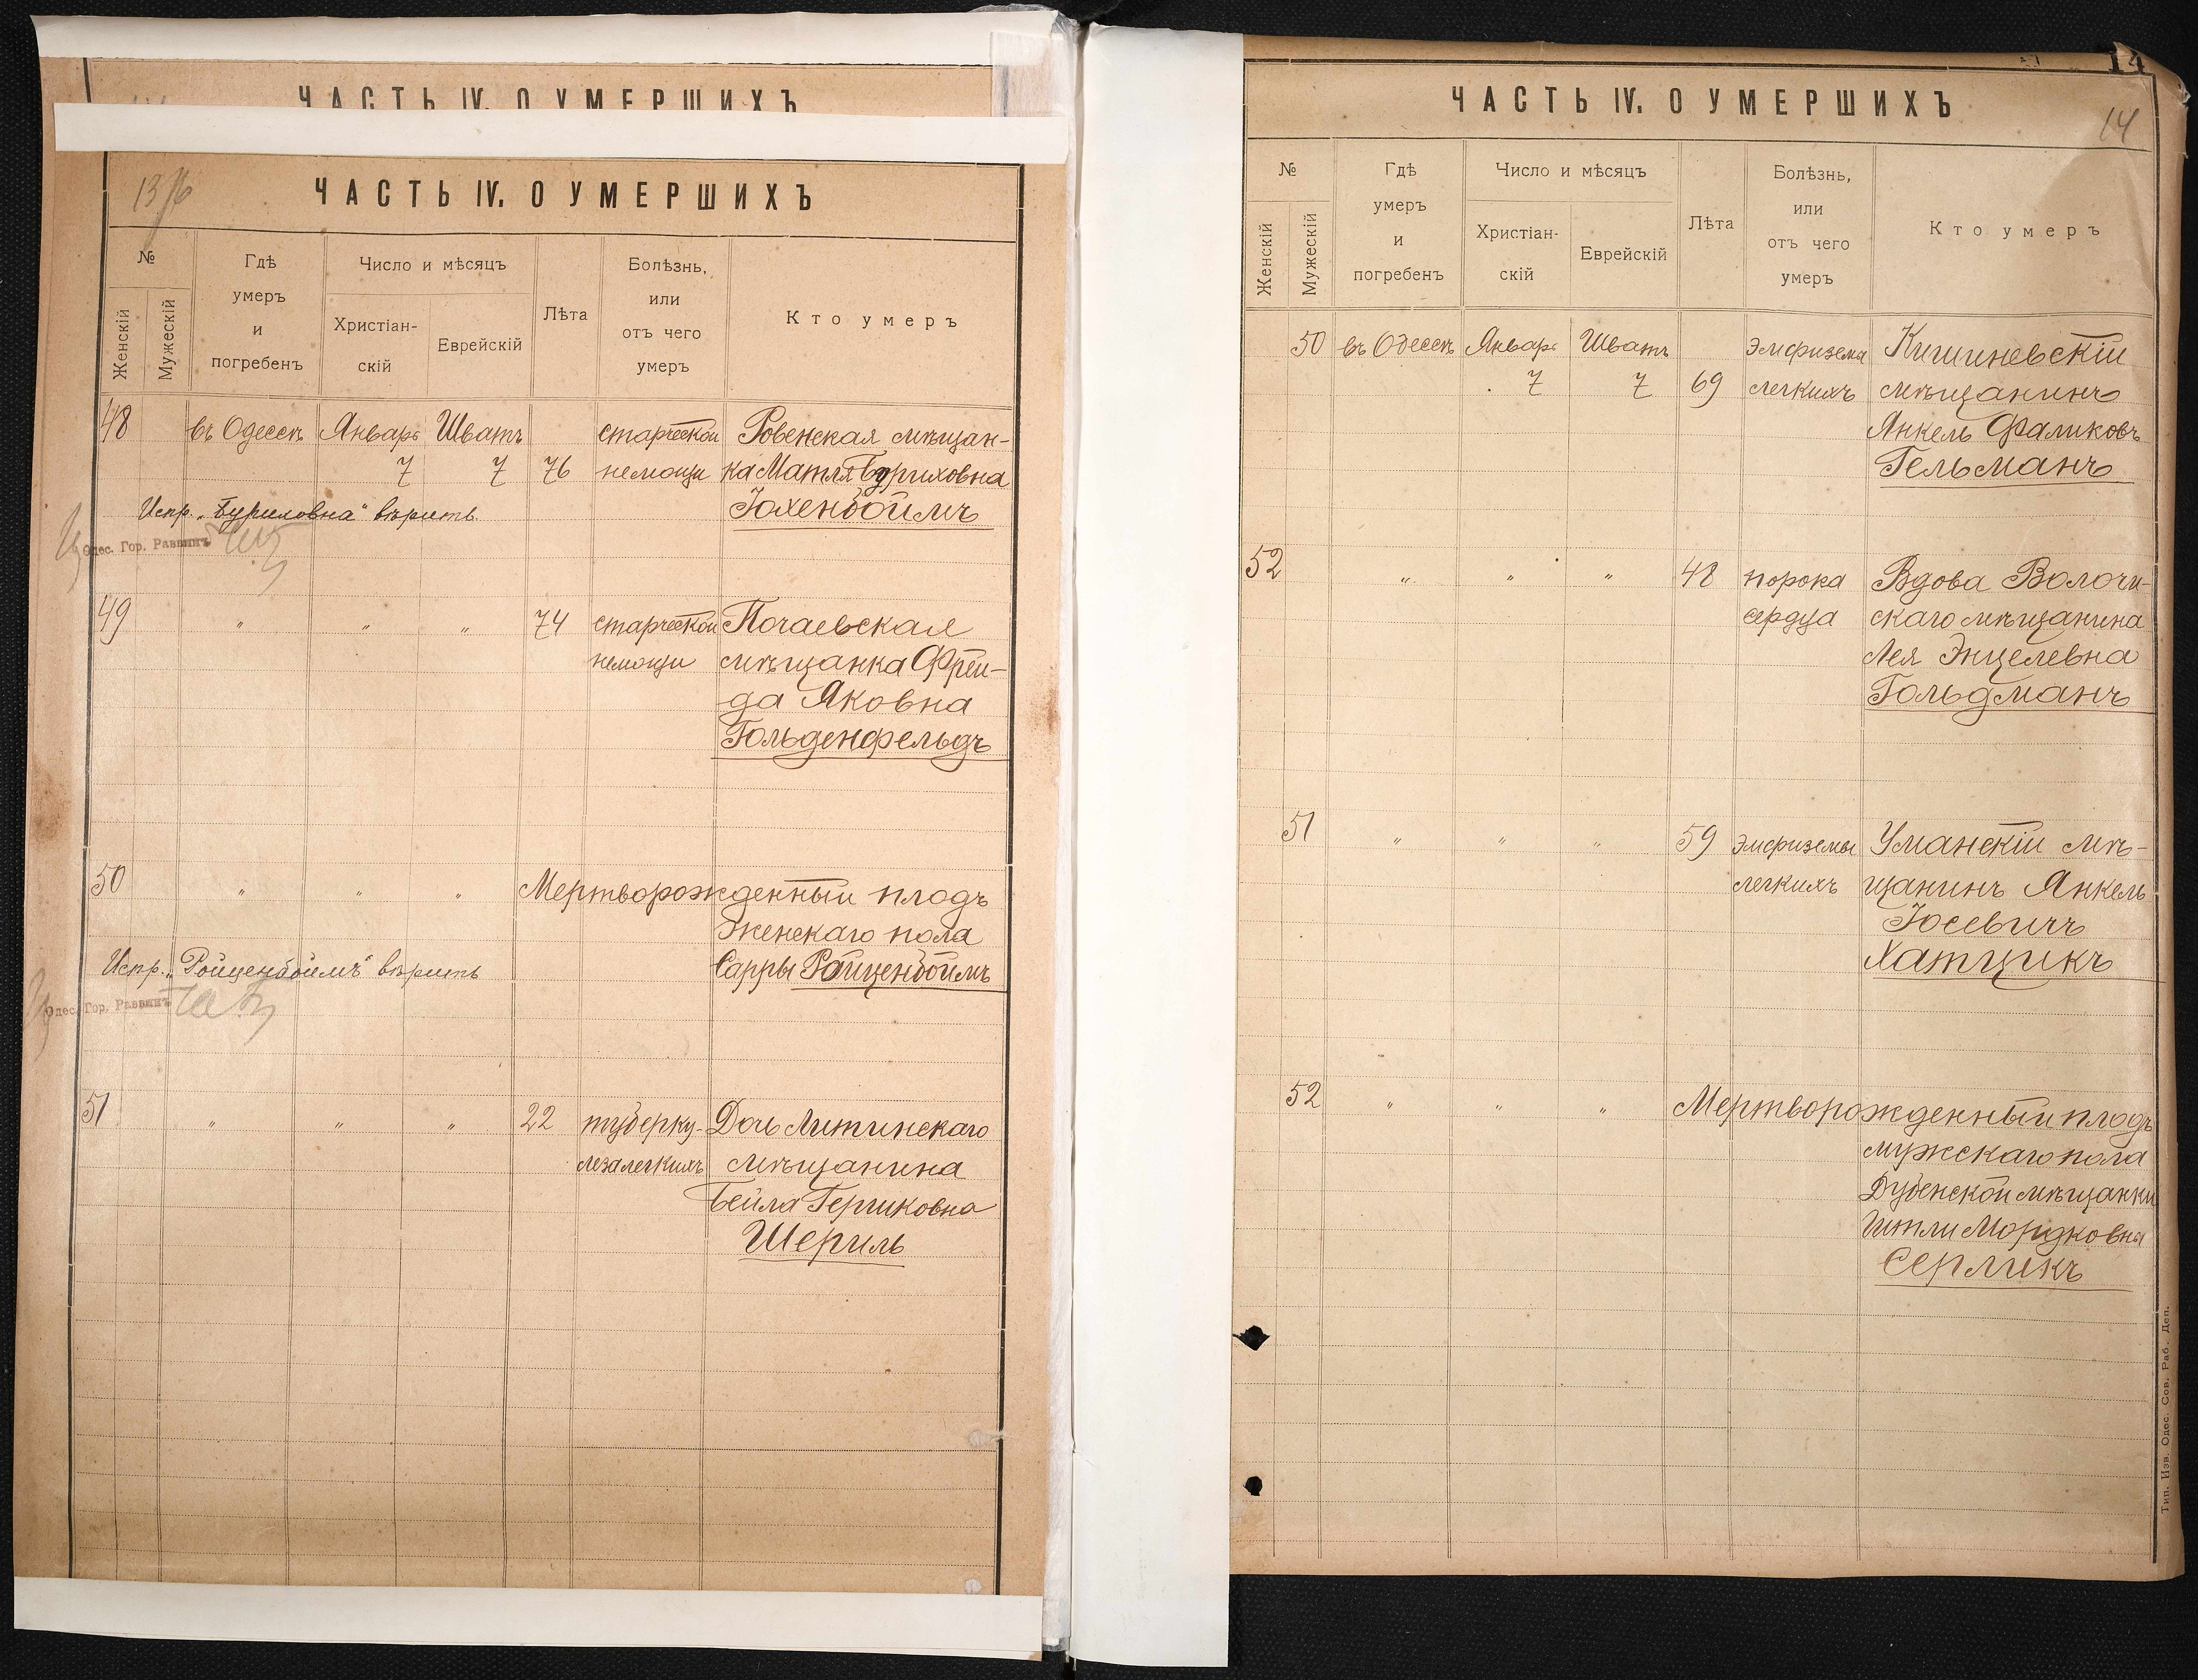 ЧАСТЬ IV. О УМЕРШИХЪ
ЧАСТЬ IV. О УМЕРШИХЪ
№
Гдѣ умеръ и погребенъ
Число и мѣсяцъ
Лѣта
Болѣзнь, или отъ чего умеръ
Кто умеръ
Женскій
Мужескій
Христіан-скій
Еврейскій
48 въ Одессѣ Январь Шватъ старческой Ровенская мѣщан-
7 7 76 немощи ка Матля Буриховна
Испр. „Буриховна" вѣрить Іохенбоймъ
Одес. Гор. Раввинъ
49 " " " 74 старческой Почаевская
немощи мѣщанка Фрей-
да Яковна
Гольденфельдъ
50 " " " Мертворожденный плодъ
женскаго пола
Испр. „Ройценбоймъ" вѣрить Сарры Ройценбоймъ
Одес. Гор. Раввинъ
51 " " " 22 туберку- Дочь Литинскаго
леза легкихъ мѣщанина
Бейла Гершковна
Шериль
14
ЧАСТЬ IV. О УМЕРШИХЪ
14
№
Гдѣ умеръ и погребенъ
Число и мѣсяцъ
Лѣта
Болѣзнь, или отъ чего умеръ
Кто умеръ
Женскій
Мужескій
Христіан-скій
Еврейскій
50 въ Одессѣ Январь Шватъ эмфизема Кишиневскій
7 7 69 легкихъ мѣщанинъ
Янкель Фаликовъ
Гельманъ
52 " " " 48 порока Вдова Волочи-
сердца скаго мѣщанина
Лея Энцелевна
Гольдманъ
51 " " " 59 эмфиземы Уманскій мѣ-
легкихъ щанинъ Янкель
Іосевичъ
Хатцикъ
52 " " " Мертворожденный плодъ
мужскаго пола
Дубенской мѣщанки
Итли Мордковна
Серликъ
Тип. Изв. Одес. Сов. Раб. Деп.